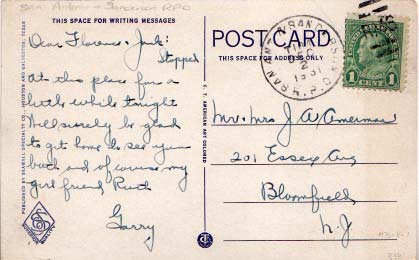 San Antonio & Sanderson RPO
THIS SPACE FOR WRITING MESSAGES
POST CARD
THIS SPACE FOR ADDRESS ONLY
Dear Florence & Jack:
Stopped
at this place for a
little while tonight
Will surely be glad
to get home to see your
bunch and of course my
girl friend Ruth
Garry
Mr & Mrs J A Amerman
201 Essex Ave
Bloomfield
N-J
PUBLISHED BY SEAWALL SPECIALTY CO., HOUSTON AND GALVESTON, TEXAS
C. T. AMERICAN ART COLORED
SAN AN & SANDERSON
DEC
2
1931
R.P.O.
1 CENT 1